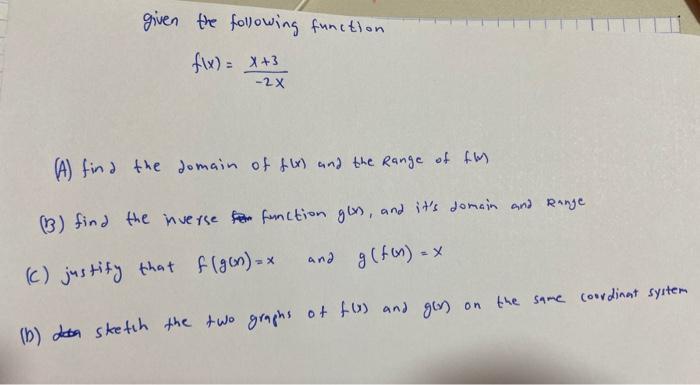 given the following function
f(x) = x+3 / -2x
(A) find the domain of f(x) and the Range of f(x)
(B) find the inverse function g(x), and it's domain and Range
(C) justify that f(g(x)) = x and g(f(x)) = x
(D) sketch the two graphs of f(x) and g(x) on the same coordinat system